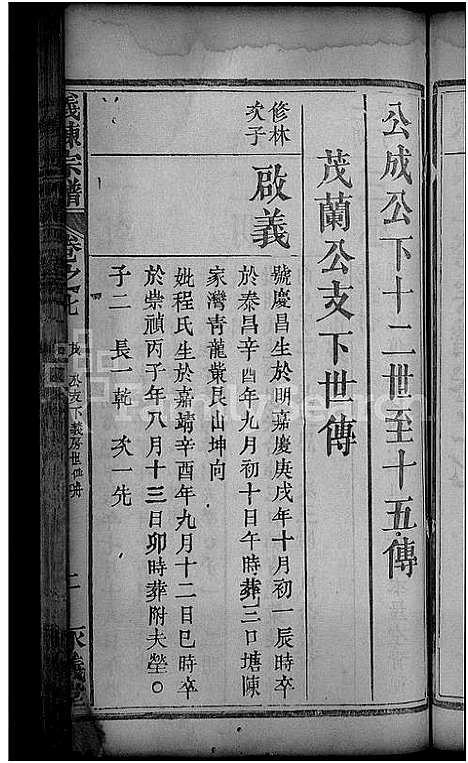 公成公下十二世至十五傳
茂蘭公支下世傳
修林
次子
啟義
號慶昌生於明嘉慶庚戌年十月初一辰時卒
於泰昌辛酉年九月初十日午時葬三口塘陳
家灣青龍嘴艮山坤向
妣程氏生於嘉靖辛酉年九月十二日巳時卒
於崇禎丙子年八月十三日卯時葬附夫塋○
子二 長一乾 次一先
義陳宗譜
卷之七
公支下義房世傳
二
FamilySearch